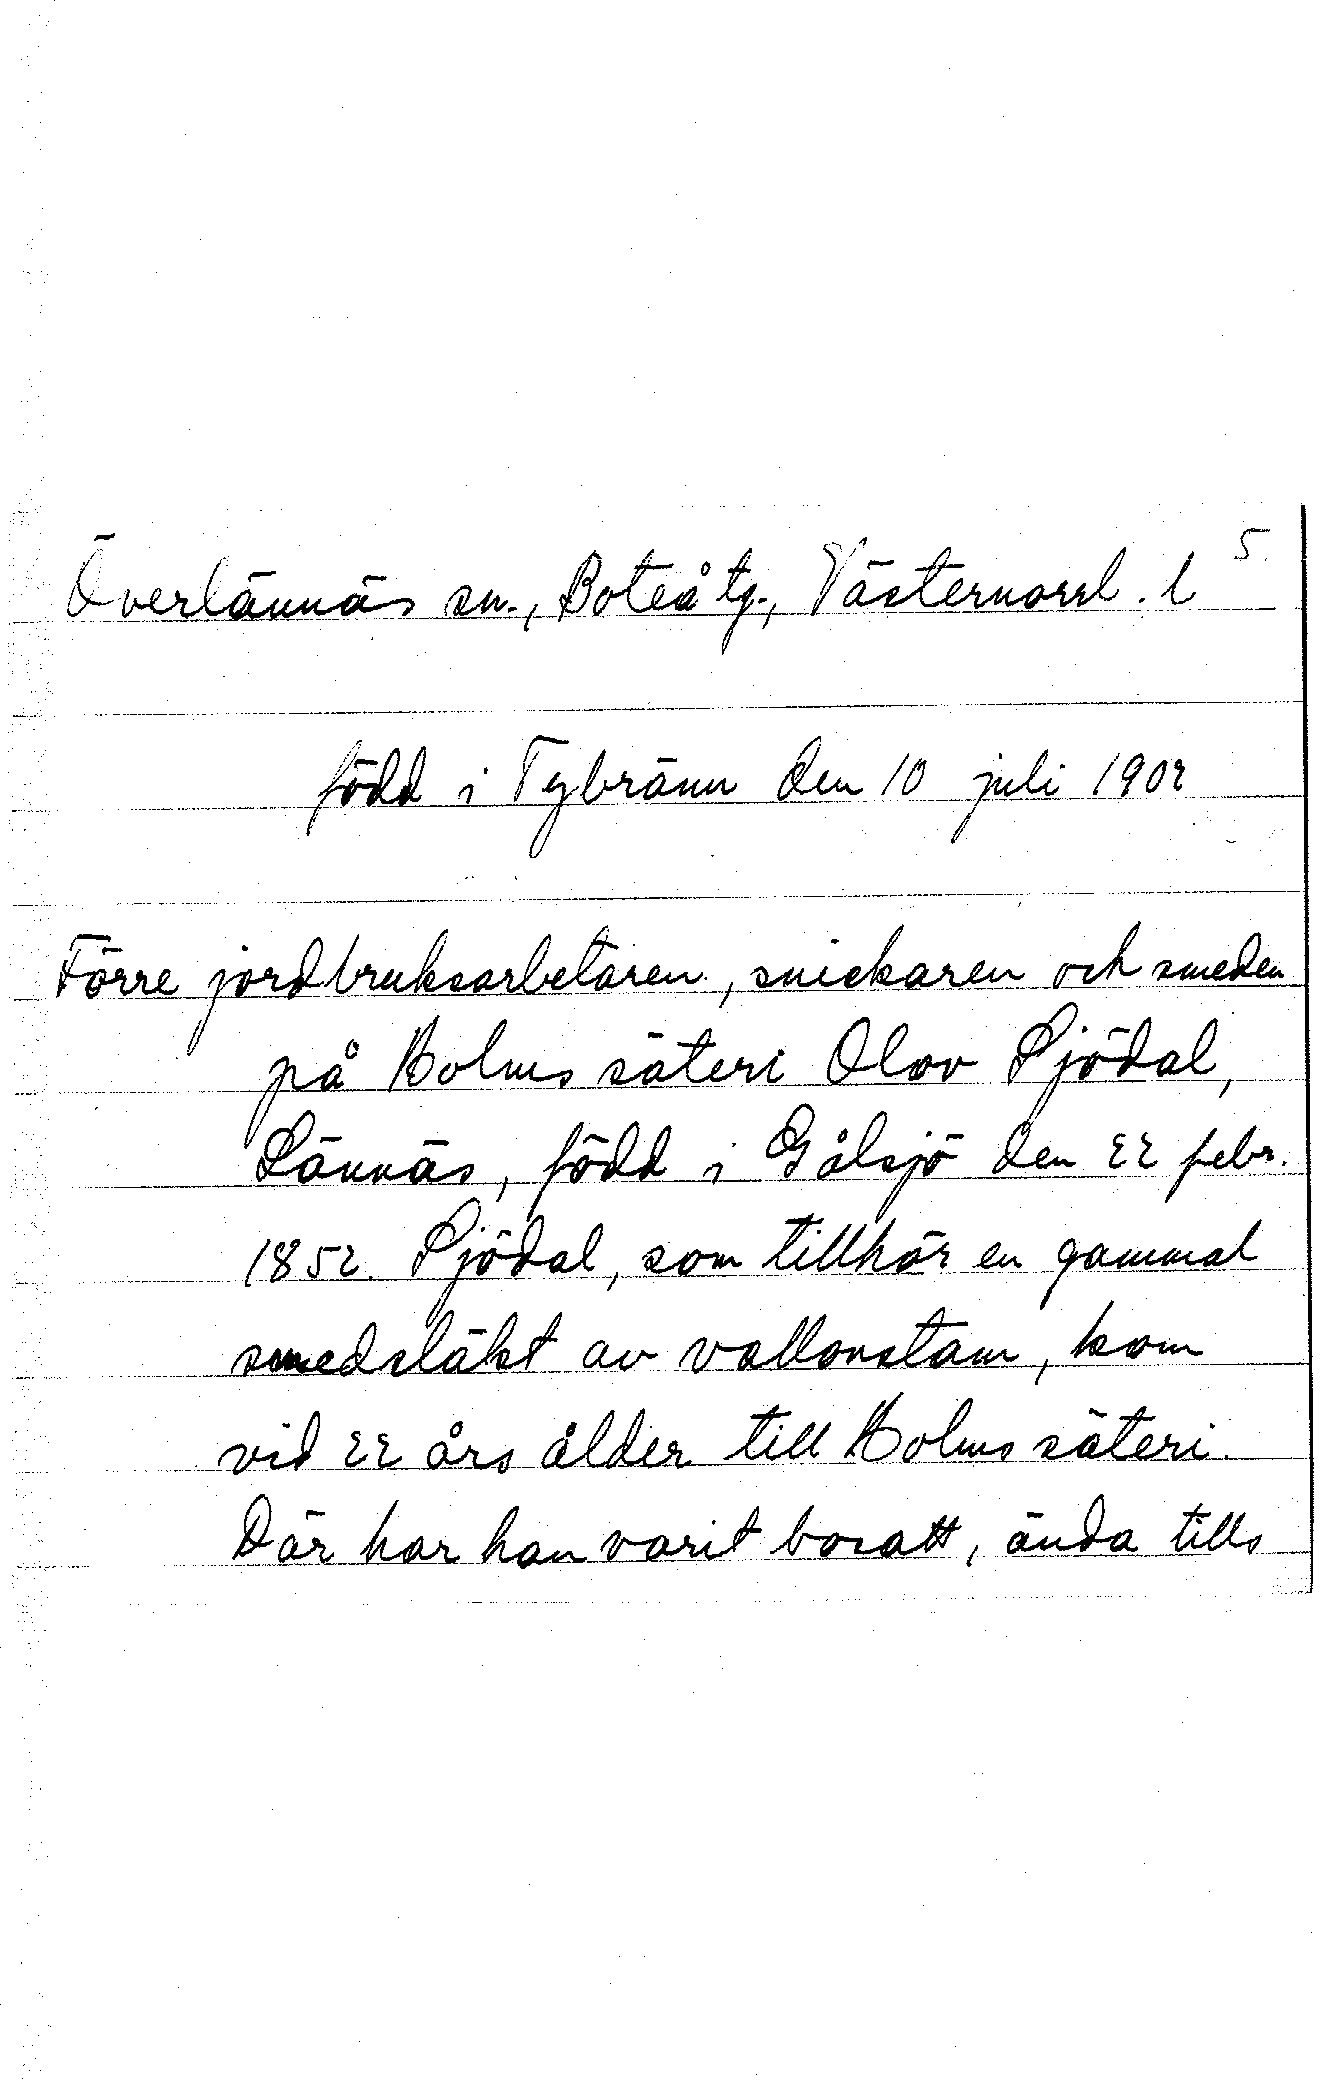 5.
Överlännäs sn., Boteå tg., Västernorrl. l
född i Tybränn den 10 juli 1902
Förre jordbruksarbetaren, snickaren och smeden
på Holms säteri Olov Sjödal,
Lännäs, född i Gålsjö den 22 febr.
1852. Sjödal, som tillhör en gammal
smedsläkt av vallonstam, kom
vid 22 års ålder till Holms säteri.
Där har han varit bosatt, ända tills